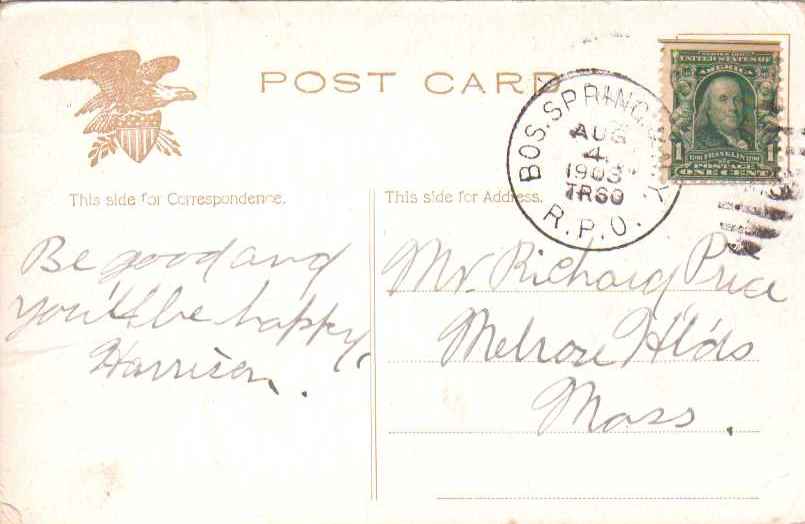 POST CARD
UNITED STATES OF
AMERICA
1 FRANKLIN 1
POSTAGE
ONE CENT
BOS. SPRING. & N.Y.
AUG
4
1903
TR60
R.P.O.
This side for Correspondence.
This side for Address.
Be good and
you'll be happy,
Harrison.
Mr. Richard Price
Melrose Hl'ds
Mass.